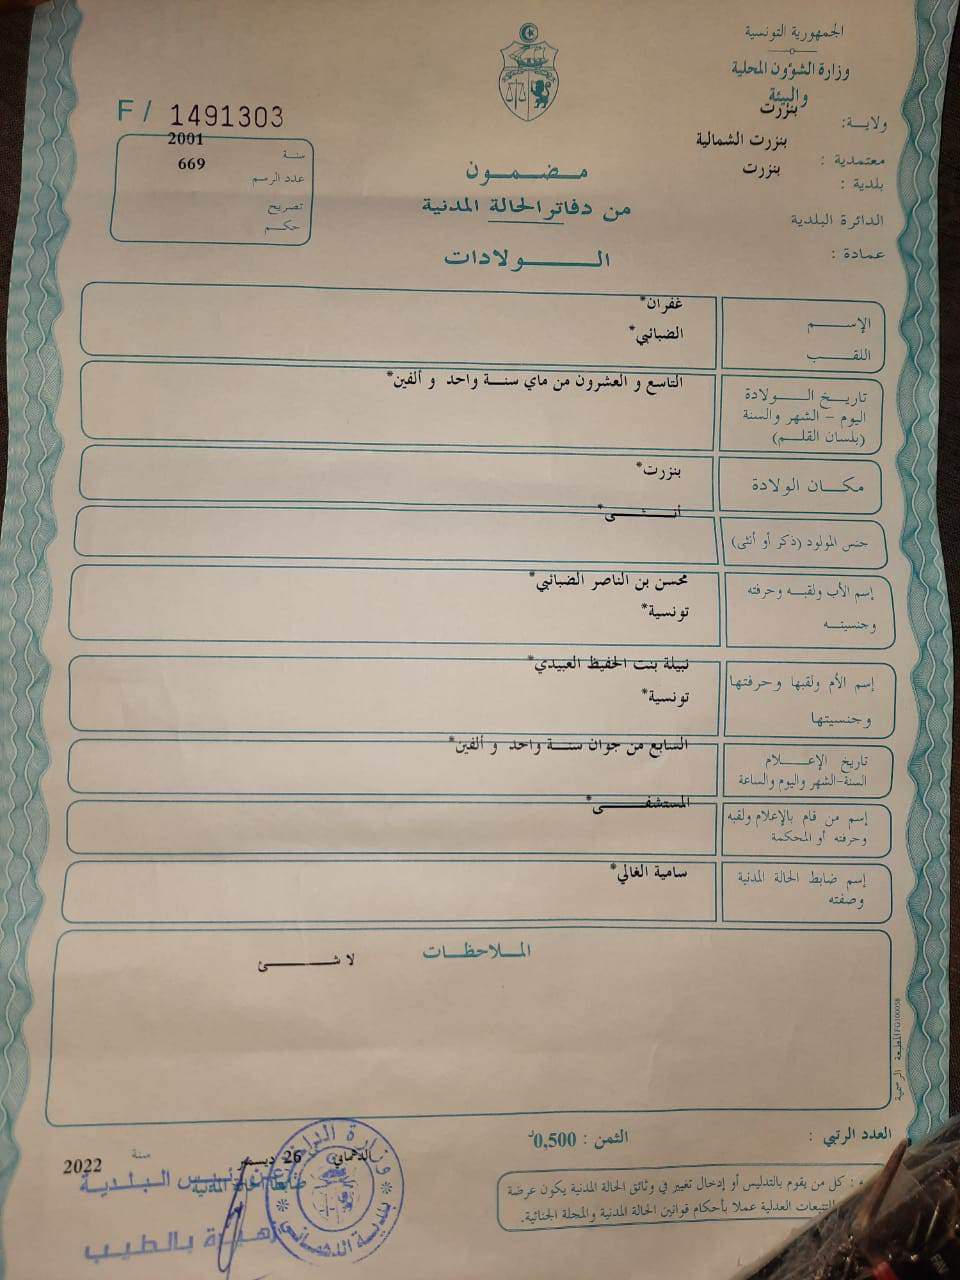 الجمهورية التونسية
وزارة الشؤون المحلية
والبيئة
ولاية: بنزرت
معتمدية : بنزرت الشمالية
بلدية : بنزرت
الدائرة البلدية
عمادة :
F / 1491303
سنة 2001
عدد الرسم 669
تصريح
حكم
مضمون
من دفاتر الحالة المدنية
الولادات
الإسم غفران*
اللقب الضبائبي*
تاريخ الولادة التاسع و العشرون من ماي سنة واحد و ألفين*
اليوم - الشهر والسنة
(بلسان القلم)
مكان الولادة بنزرت*
جنس المولود (ذكر أو أنثى) أنثى*
إسم الأب ولقبه وحرفته محسن بن الناصر الضبائبي*
وجنسيته تونسية*
إسم الأم ولقبها وحرفتها نبيلة بنت الحفيظ العبيدي*
وجنسيتها تونسية*
تاريخ الإعلام السابع من جوان سنة واحد و ألفين*
السنة-الشهر واليوم والساعة
إسم من قام بالإعلام ولقبه المستشفى*
وحرفته أو المحكمة
إسم ضابط الحالة المدنية سامية الغالي*
وصفته
الملاحظات
لا شئ
المطبعة الرسمية FG100058
العدد الرتبي :
الثمن : 0,500د
الدهماني 26 ديسمبر سنة 2022
ضابط الحالة المدنية
عن رئيس البلدية
بالطيب
: كل من يقوم بالتدليس أو إدخال تغيير في وثائق الحالة المدنية يكون عرضة
للتتبعات العدلية عملا بأحكام قوانين الحالة المدنية والمجلة الجنائية.